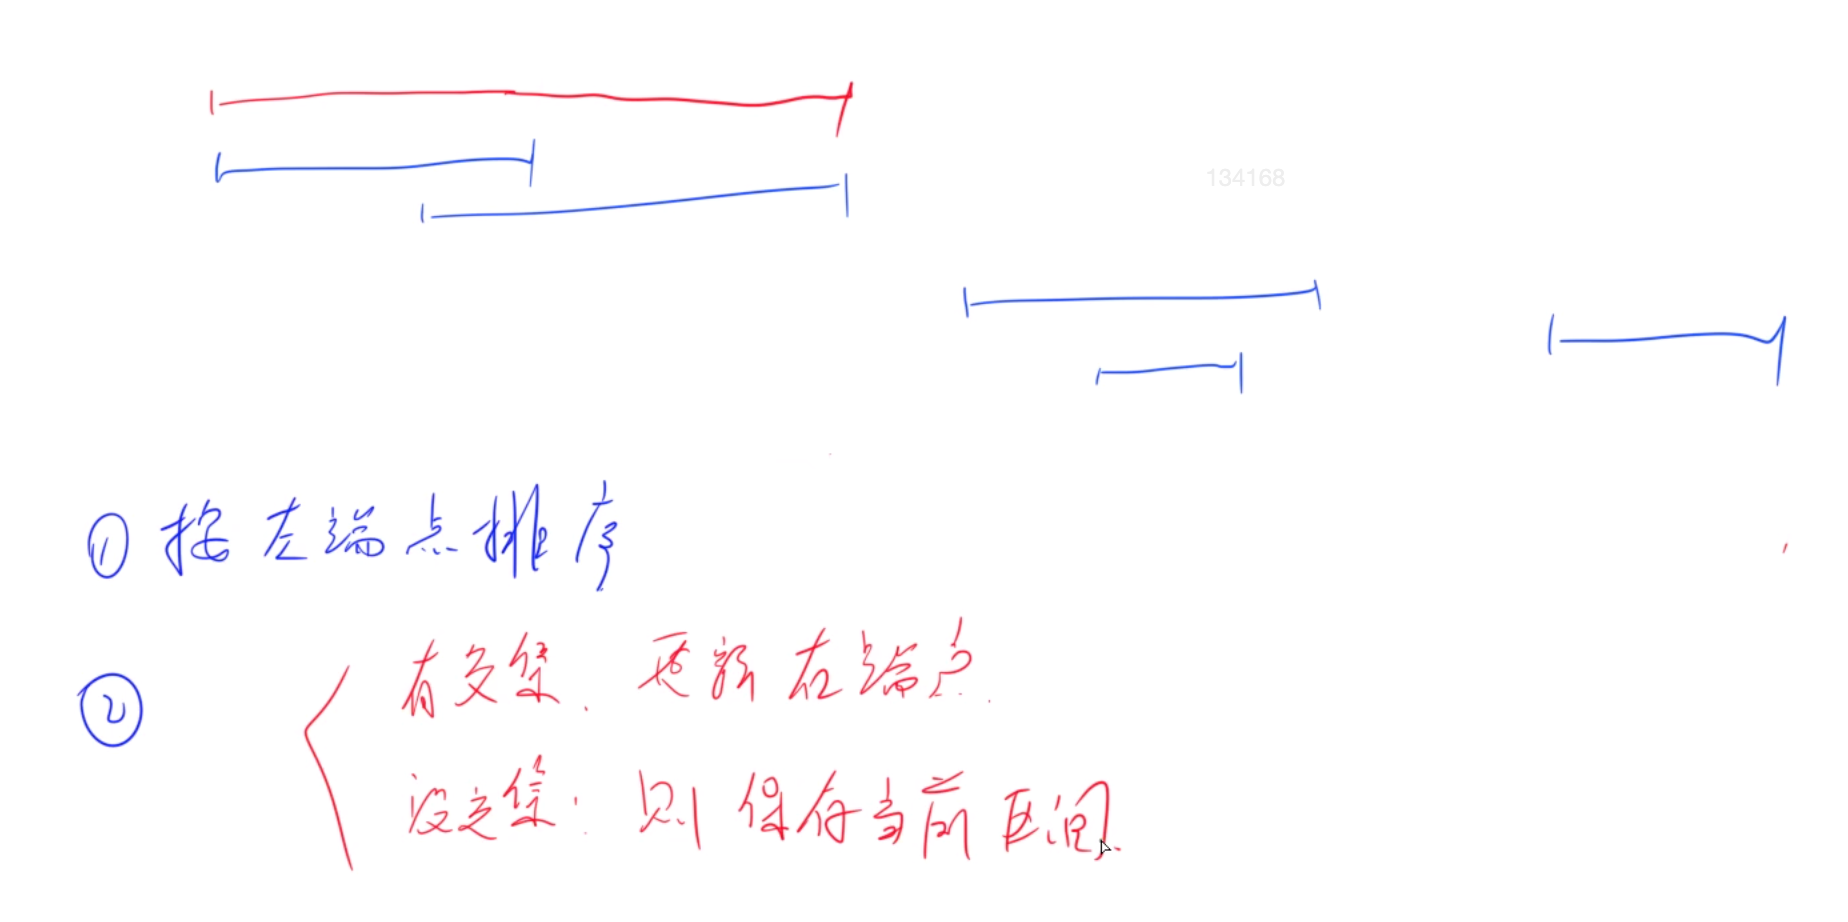 134168
① 按左端点排序
②
有交集. 更新右端点.
没交集: 则保存当前区间.